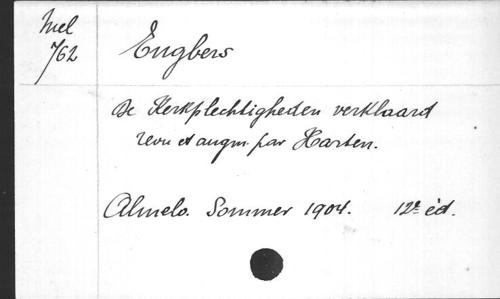 Mel
762
Engbers
De Kerkplechtigheden verklaard
revu et augm. par Harten.
Almelo. Sommer 1904. 12e éd.